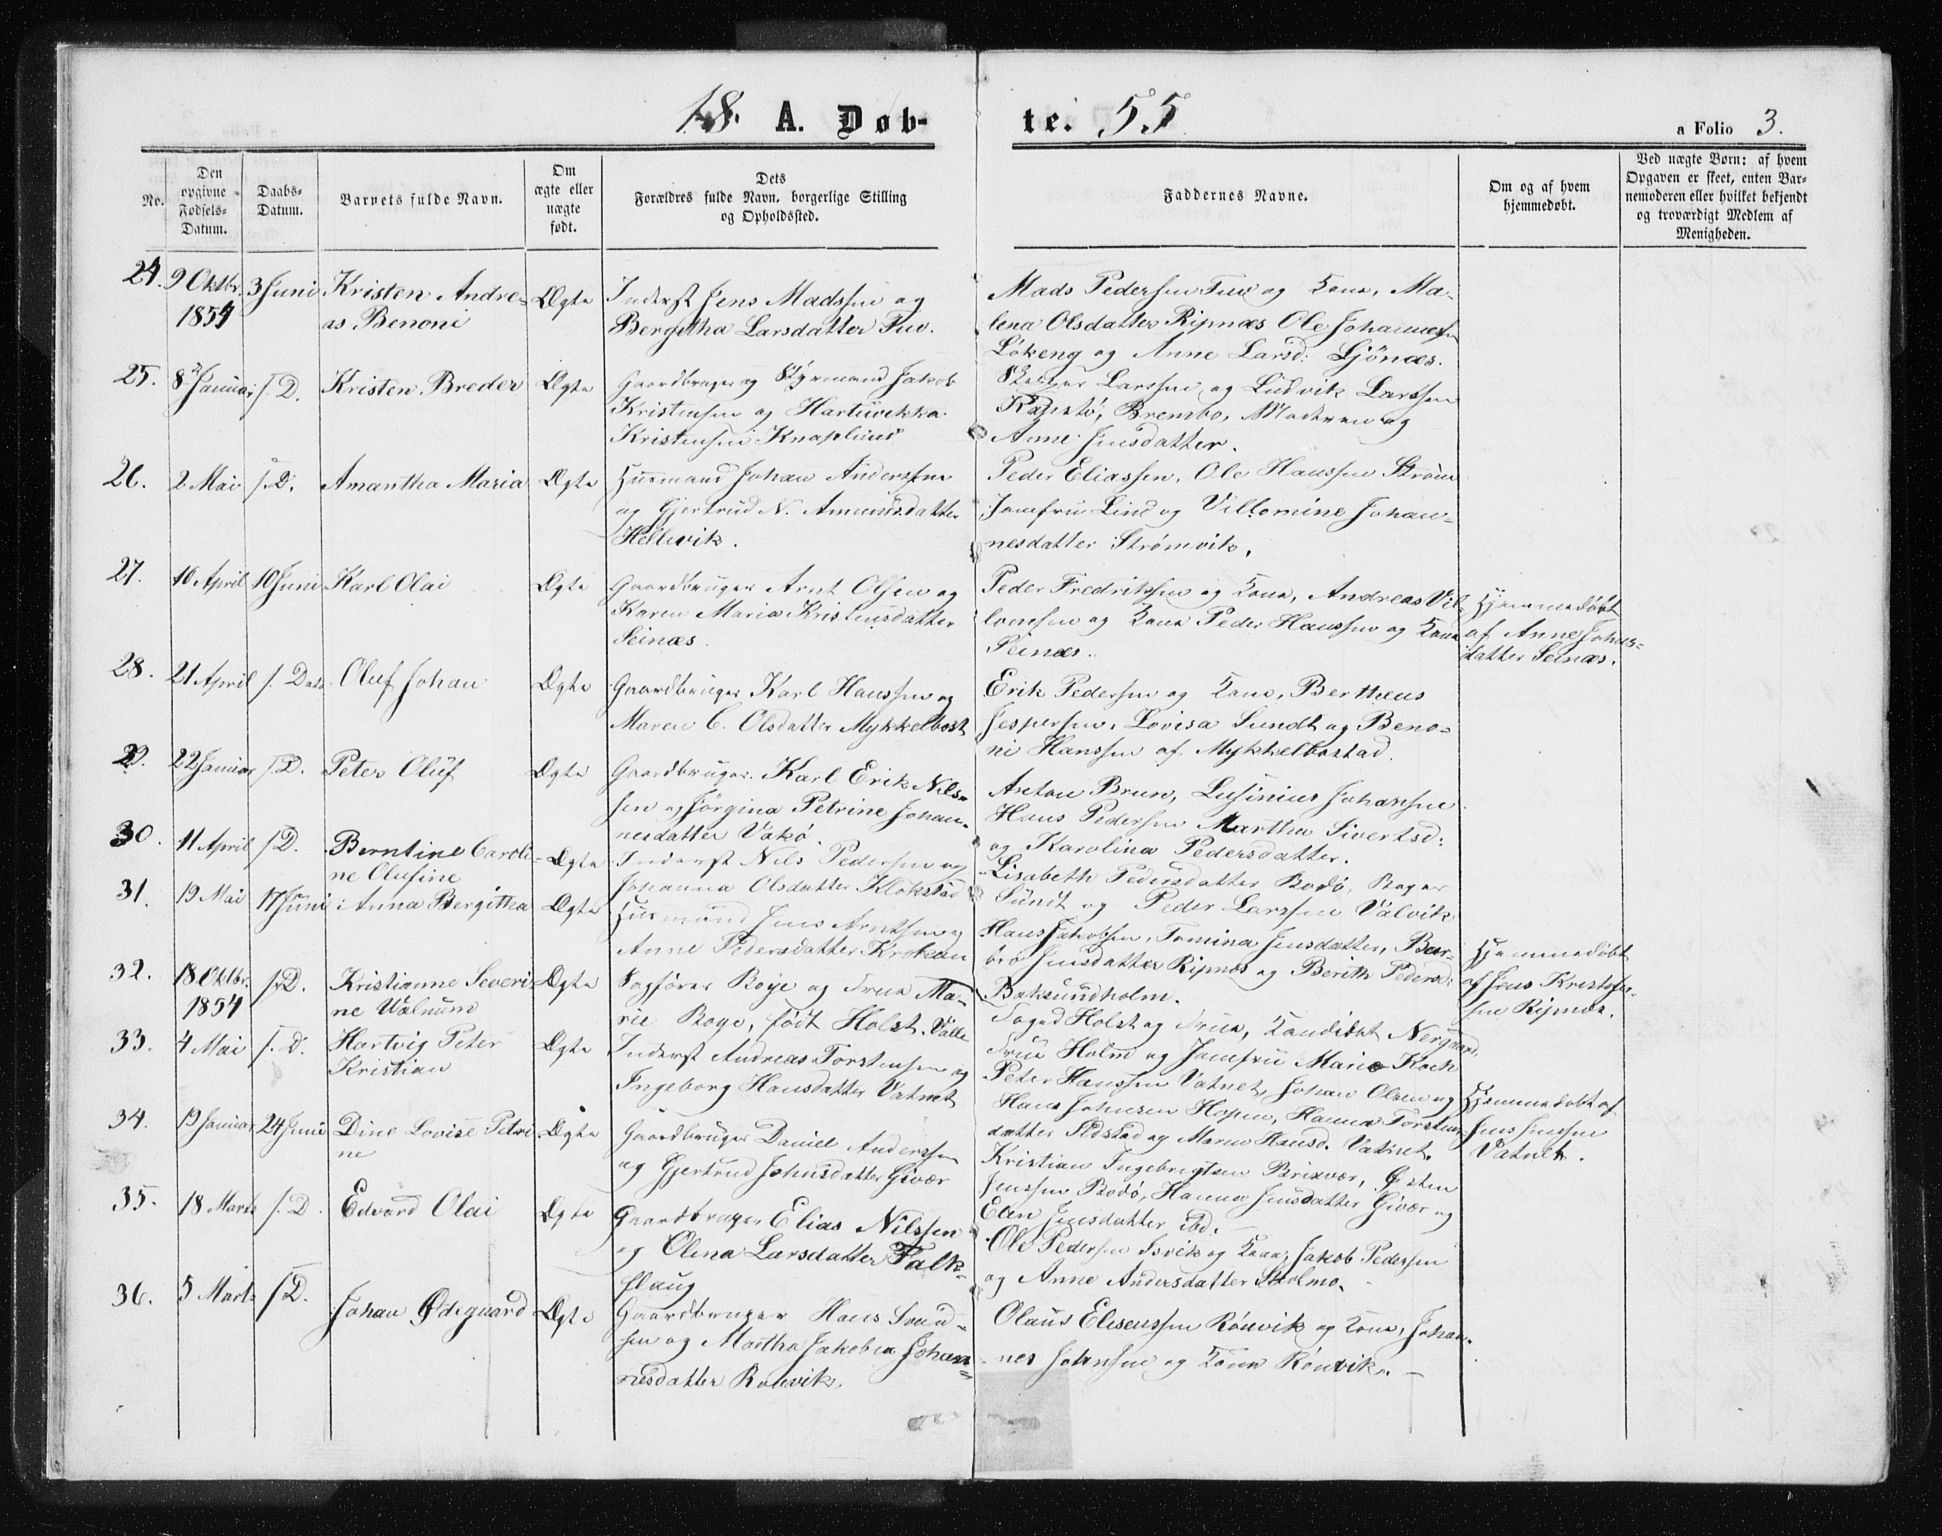 18 A. Døb- te. 55
a Folio 3.
No.
Den opgivne Fødsels-Datum.
Daabs-Datum.
Barnets fulde Navn.
Om ægte eller uægte født.
Dets Forældres fulde Navn, borgerlige Stilling og Opholdssted.
Faddernes Navne.
Om og af hvem hjemmedøbt.
Ved uægte Børn: af hvem Opgaven er skeet, enten Barnemoderen eller hvilket bekjendt og troværdigt Medlem af Menigheden.
24. 9 Oktbr. 1854 3 Juni Kristen Andre-
as Benoni Ægte
Inderst Jens Madssen og
Bergitha Larsdatter Fuv.
Mads Pedersen Fuv og Kone, Ma-
lena Olsdatter Ripnæs Ole Johanness.
Løkeng og Anne Larsd: Gjønæs.
25. 8 Januar s. D. Kristen Breder Ægte
Gaardbruger og Styrmand Jakob
Kristensen og Hartivikka
Kristensen Knaplund
Larssen og Ludvik Larssen
Kapstø, Brembo, Moderen og
Anne Jensdatter.
26. 2 Mai s. D. Amantha Maria Ægte
Husmand Johan Anderssen
og Gjertrud N. Amundsdatter
Hellevik.
Peder Eliassen, Ole Hanssen Strøm
Jomfru Lind og Villomine Johan-
nesdatter Strømvik.
27. 10 April 10 Juni Karl Olai Ægte
Gaardbruger Arnt Olsen og
Karen Maria Kristensdatter
Seinæs.
Peder Fredrikssen og Kone, Andreas Vil-
lomsen og Kone Peder Hanssen og Kone
Seinæs.
Hjemmedøbt
af Anne Johns-
datter Seinæs.
28. 21 April s. Dato Oluf Johan Ægte
Gaardbruger Karl Hanssen og
Maren C. Olsdatter Mykkelbost
Erik Pedersen og Kone, Bertheus
Jespersen, Lovisa Sundt og Beno-
ni Hanssen af Mykkelbostad.
29. 22 Januar s. D. Peter Oluf Ægte
Gaardbruger Karl Erik Nils-
sen og Jørgina Petrine Johan-
nesdatter Vakø.
Anton Brun, Lusinius Johansen
Hans Pedersen Martha Sivertsd:
og Karolina Pedersdatter.
30. 11 April s. D. Berntine Caroli-
ne Olufine Ægte
Inderst Nils Pedersen og
Johanna Olsdatter Klokstad
Lisabeth Pedersdatter Bodø, Roger
Sundt og Peder Larssen Valvik
31. 19 Mai 17 Juni Anna Bergitha Ægte
Husmand Jens Arntsen og
Anne Pedersdatter Krokan
Hans Jakobsen, Tomina Jensdatter, Bar-
bro Jensdatter Ripnæs og Berith Pedersd:
Baksundholm.
Hjemmedøbt
af Jens Kristofer-
sen Ripnæs.
32. 18 Oktbr. 1854 s. D. Kristianne Severi-
ne Walnum Ægte
Sagfører Boye og Frue Ma-
rie Boye, født Holst. Valle
Foged Holst og Frue, Kandidat Nergaard,
Frue Holm og Jomfru Marie Koch
33. 4 Mai s. d. Hartvig Peter
Kristian Ægte
Inderst Andreas Torstensen og
Ingeborg Hansdatter Vatnet
Peter Hanssen Vatnet, Johan Olsen og
Hans Johnsen Hopen, Hanna Torstens-
datter Ildstad og Maren Hansd. Vatnet.
Hjemmedøbt af
Jens Jenssen
Vatnet.
34. 19 Januar 24 Juni Dine Lovise Petri-
ne Ægte
Gaardbruger Daniel Anderssen
og Gjertrud Johnsdatter Givær
Kristian Ingebrigtsen Brixvær, Østen
Jenssen Bodø, Hanna Jensdatter Givær og
Elen Jensdatter ibd.
35. 18 Marts s. D. Edvard Olai Ægte
Gaardbruger Elias Nilssen
og Olena Larsdatter Falk-
flaug
Ole Pedersen Isvik og Kone, Jakob Pedersen
og Anne Andersdatter Skolmo.
36. 5 Marts s. D. Johan Ødegaard Ægte
Gaardbruger Hans Svend-
sen og Martha Jakobia Johan-
nesdatter Rønvik.
Olaus Eliseussen Rønvik og Kone, Johan-
nes Johnsen og Kone Rønvik.